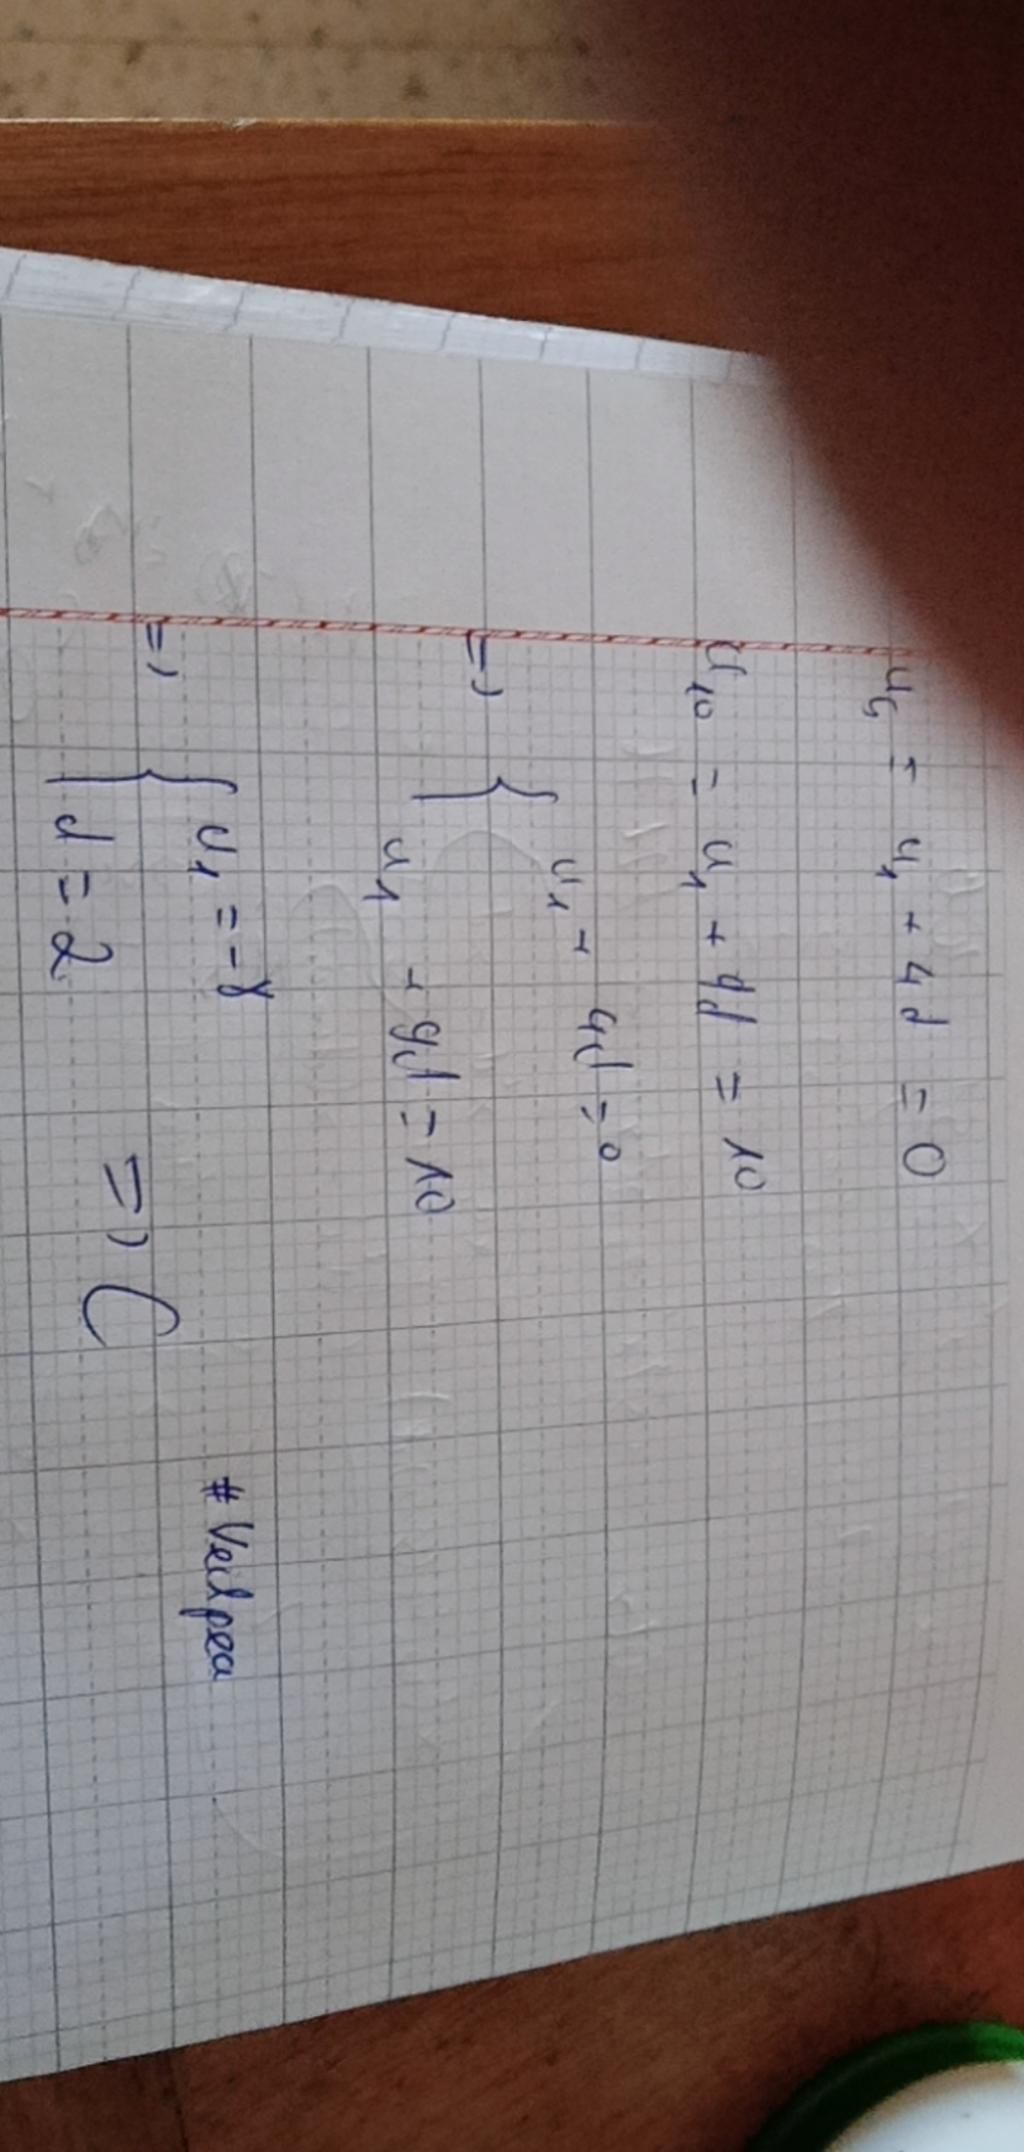 u₅ = u₁ + 4d = 0
U₁₀ = u₁ + 9d = 10
=> { u₁ + 4d = 0
u₁ + 9d = 10
=> { u₁ = -8
d = 2 => C
# Veilpea